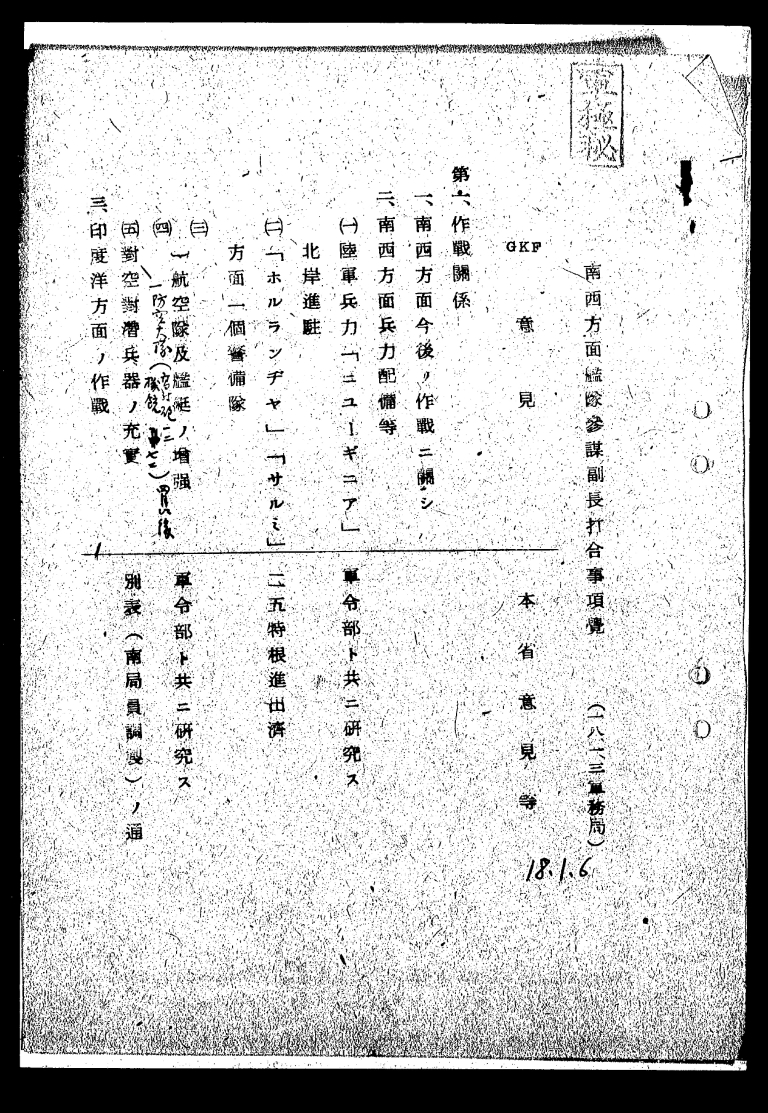 軍極秘
南西方面艦隊參謀副長打合事項覺 (一八、一、三軍務局)
18.1.6
GKF 意見
本省意見等
第一、作戰關係
一、南西方面今後ノ作戰ニ關シ
二、南西方面兵力配備等
㈠陸軍兵力「ニユーギニア」
北岸進駐
軍令部ト共ニ研究ス
㈡「ホルランヂヤ」「サルミ」
方面一個警備隊
二、五特根進出濟
㈢
㈣航空隊及艦艇ノ增强
軍令部ト共ニ研究ス
一防空大隊
㈤對空對潛兵器ノ充實
別表(南局員調製)ノ通
三、印度洋方面ノ作戰